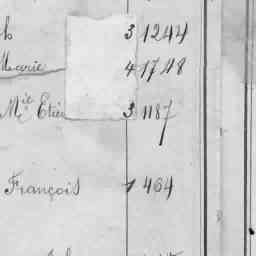 h 3 1244
Marie 4 1748
M.ie Etie 3 1187
François 1 464